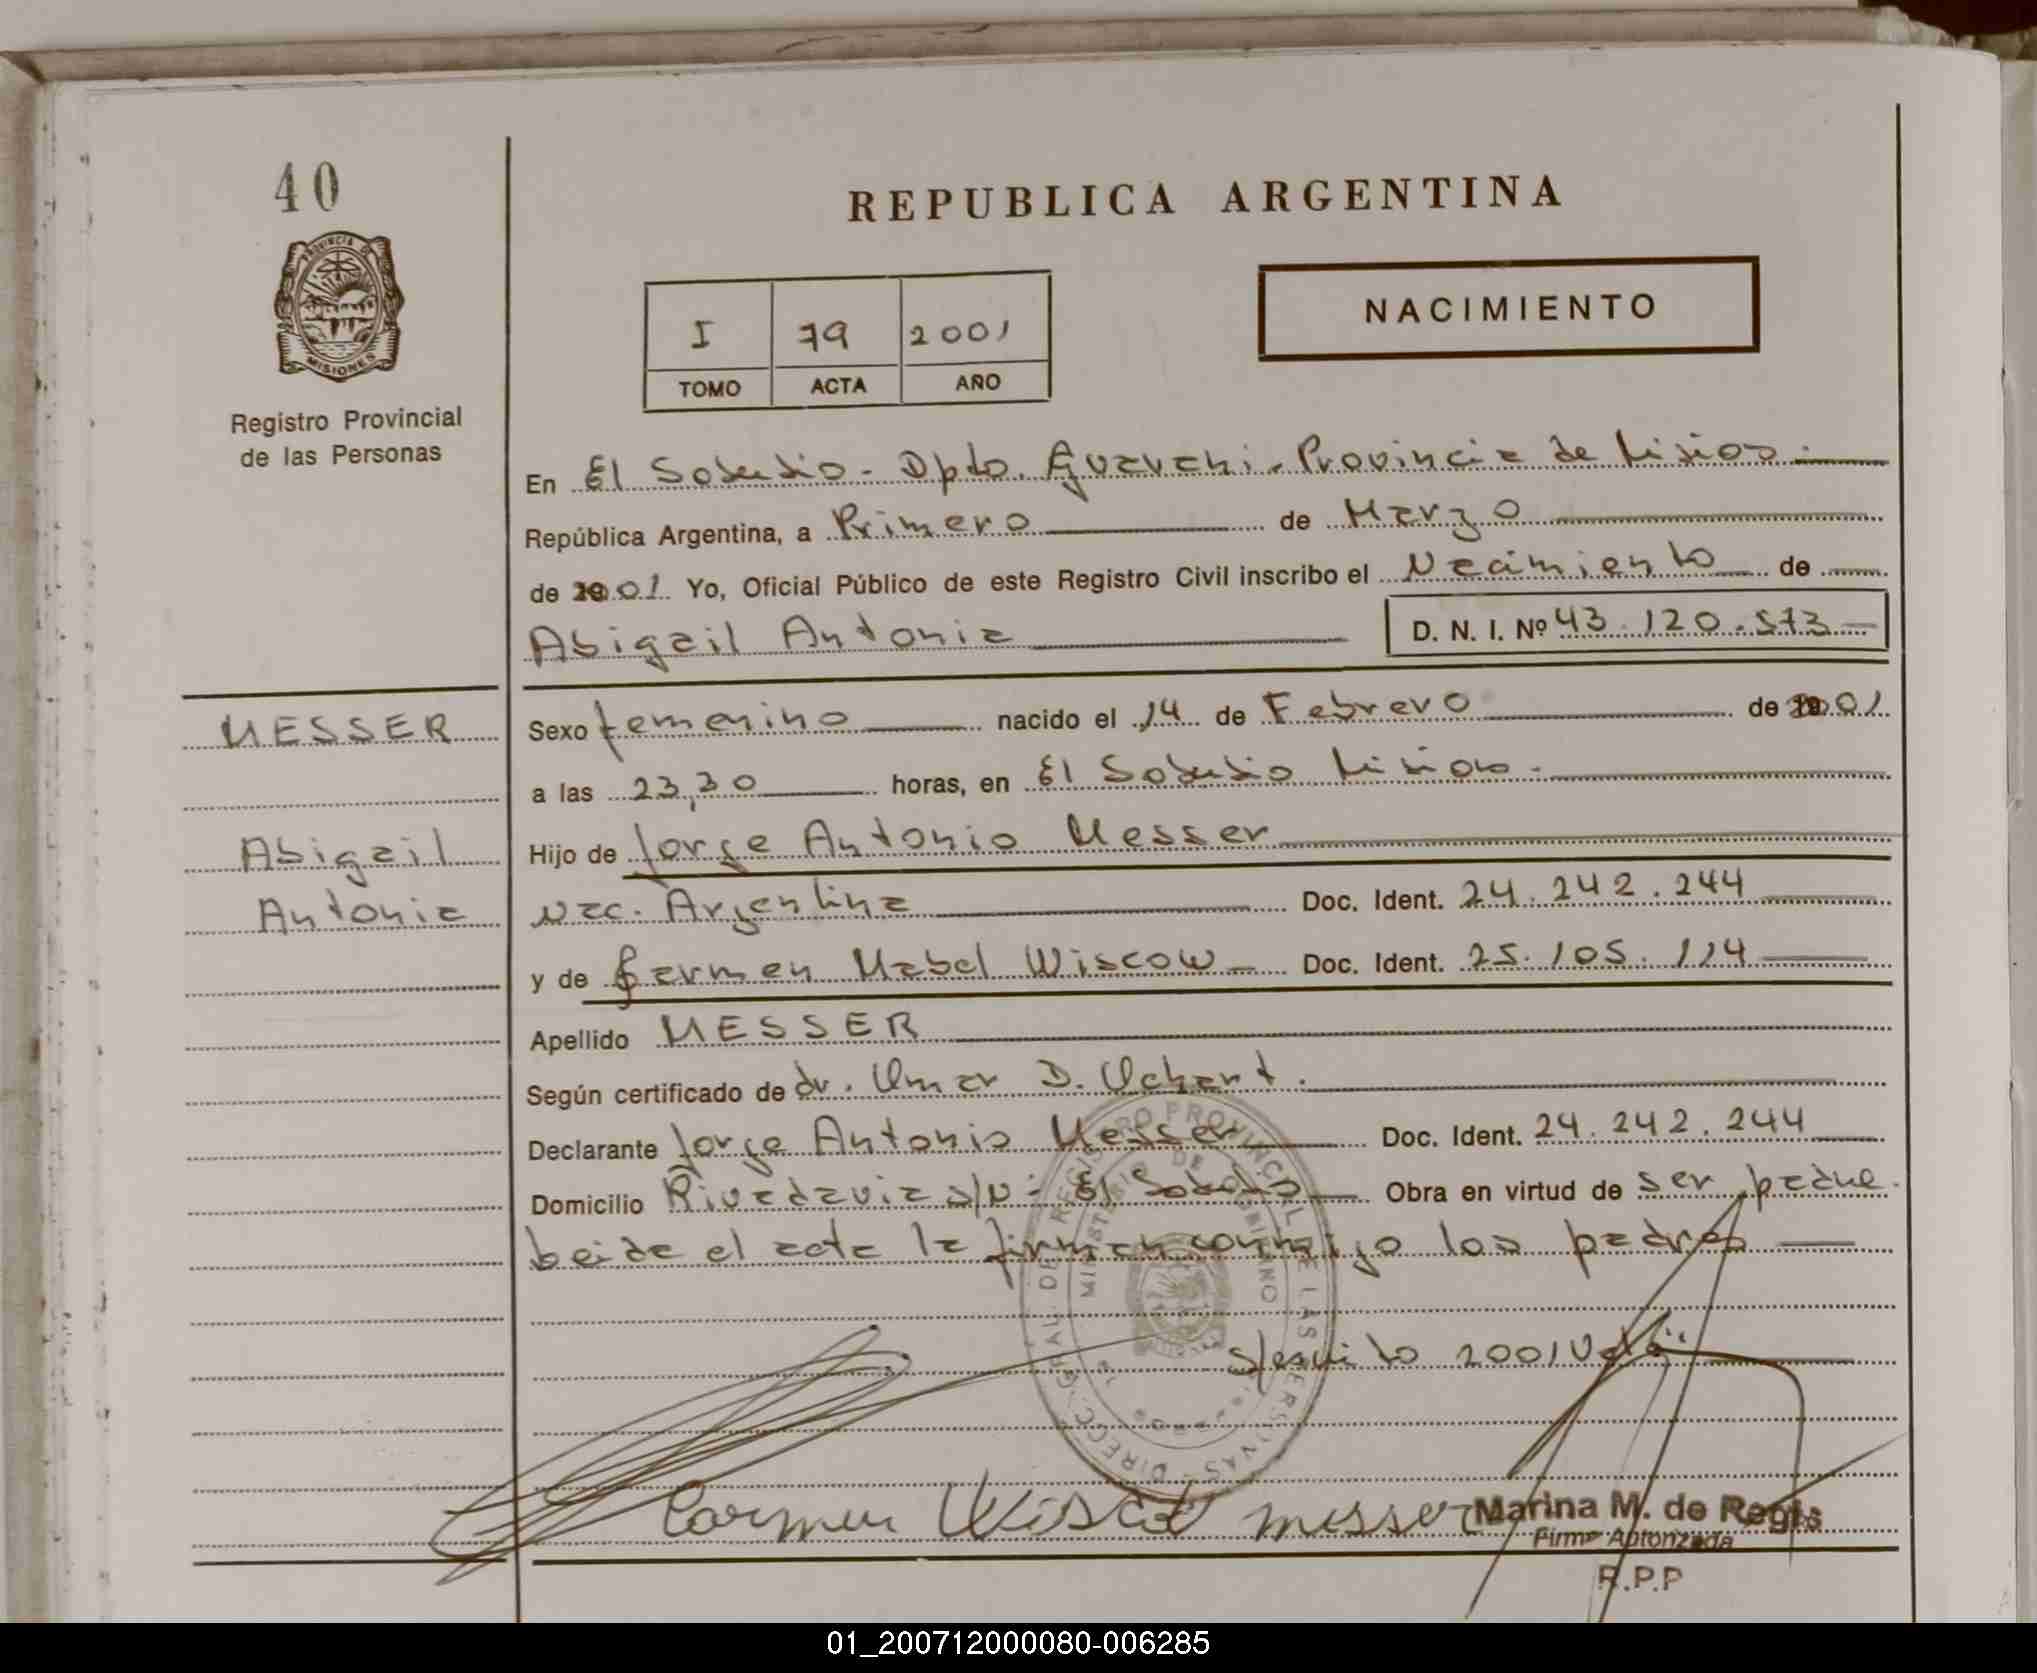 40
PROVINCIA DE
MISIONES
Registro Provincial
de las Personas
REPUBLICA ARGENTINA
NACIMIENTO
I 79 2001
TOMO ACTA AÑO
En El Soberbio - Dpto. Guarani - Provincia de Misiones.
República Argentina, a Primero de Marzo
de 2001 Yo, Oficial Público de este Registro Civil inscribo el Nacimiento de
Abigail Antonia D. N. I. Nº 43.120.573
MESSER
Abigail
Antonia
Sexo femenino nacido el 14 de Febrero de 2001
a las 23,30 horas, en El Soberbio Misiones.
Hijo de Jorge Antonio Messer
Nac. Argentina Doc. Ident. 24.242.244
y de Carmen Mabel Wiscow Doc. Ident. 25.105.114
Apellido MESSER
Según certificado de dr. Omar D.
Declarante Jorge Antonio Messer Doc. Ident. 24.242.244
Domicilio Rivadavia s/N: El Soberbio Obra en virtud de ser padre.
Leida el acta la firman conmigo los padres
2001 Vale
REGISTRO PROVINCIAL DE LAS PERSONAS
MINISTERIO DE GOBIERNO
Carmen Messer
Marina M. de Regis
Firma Autorizada
R.P.P
01_200712000080-006285